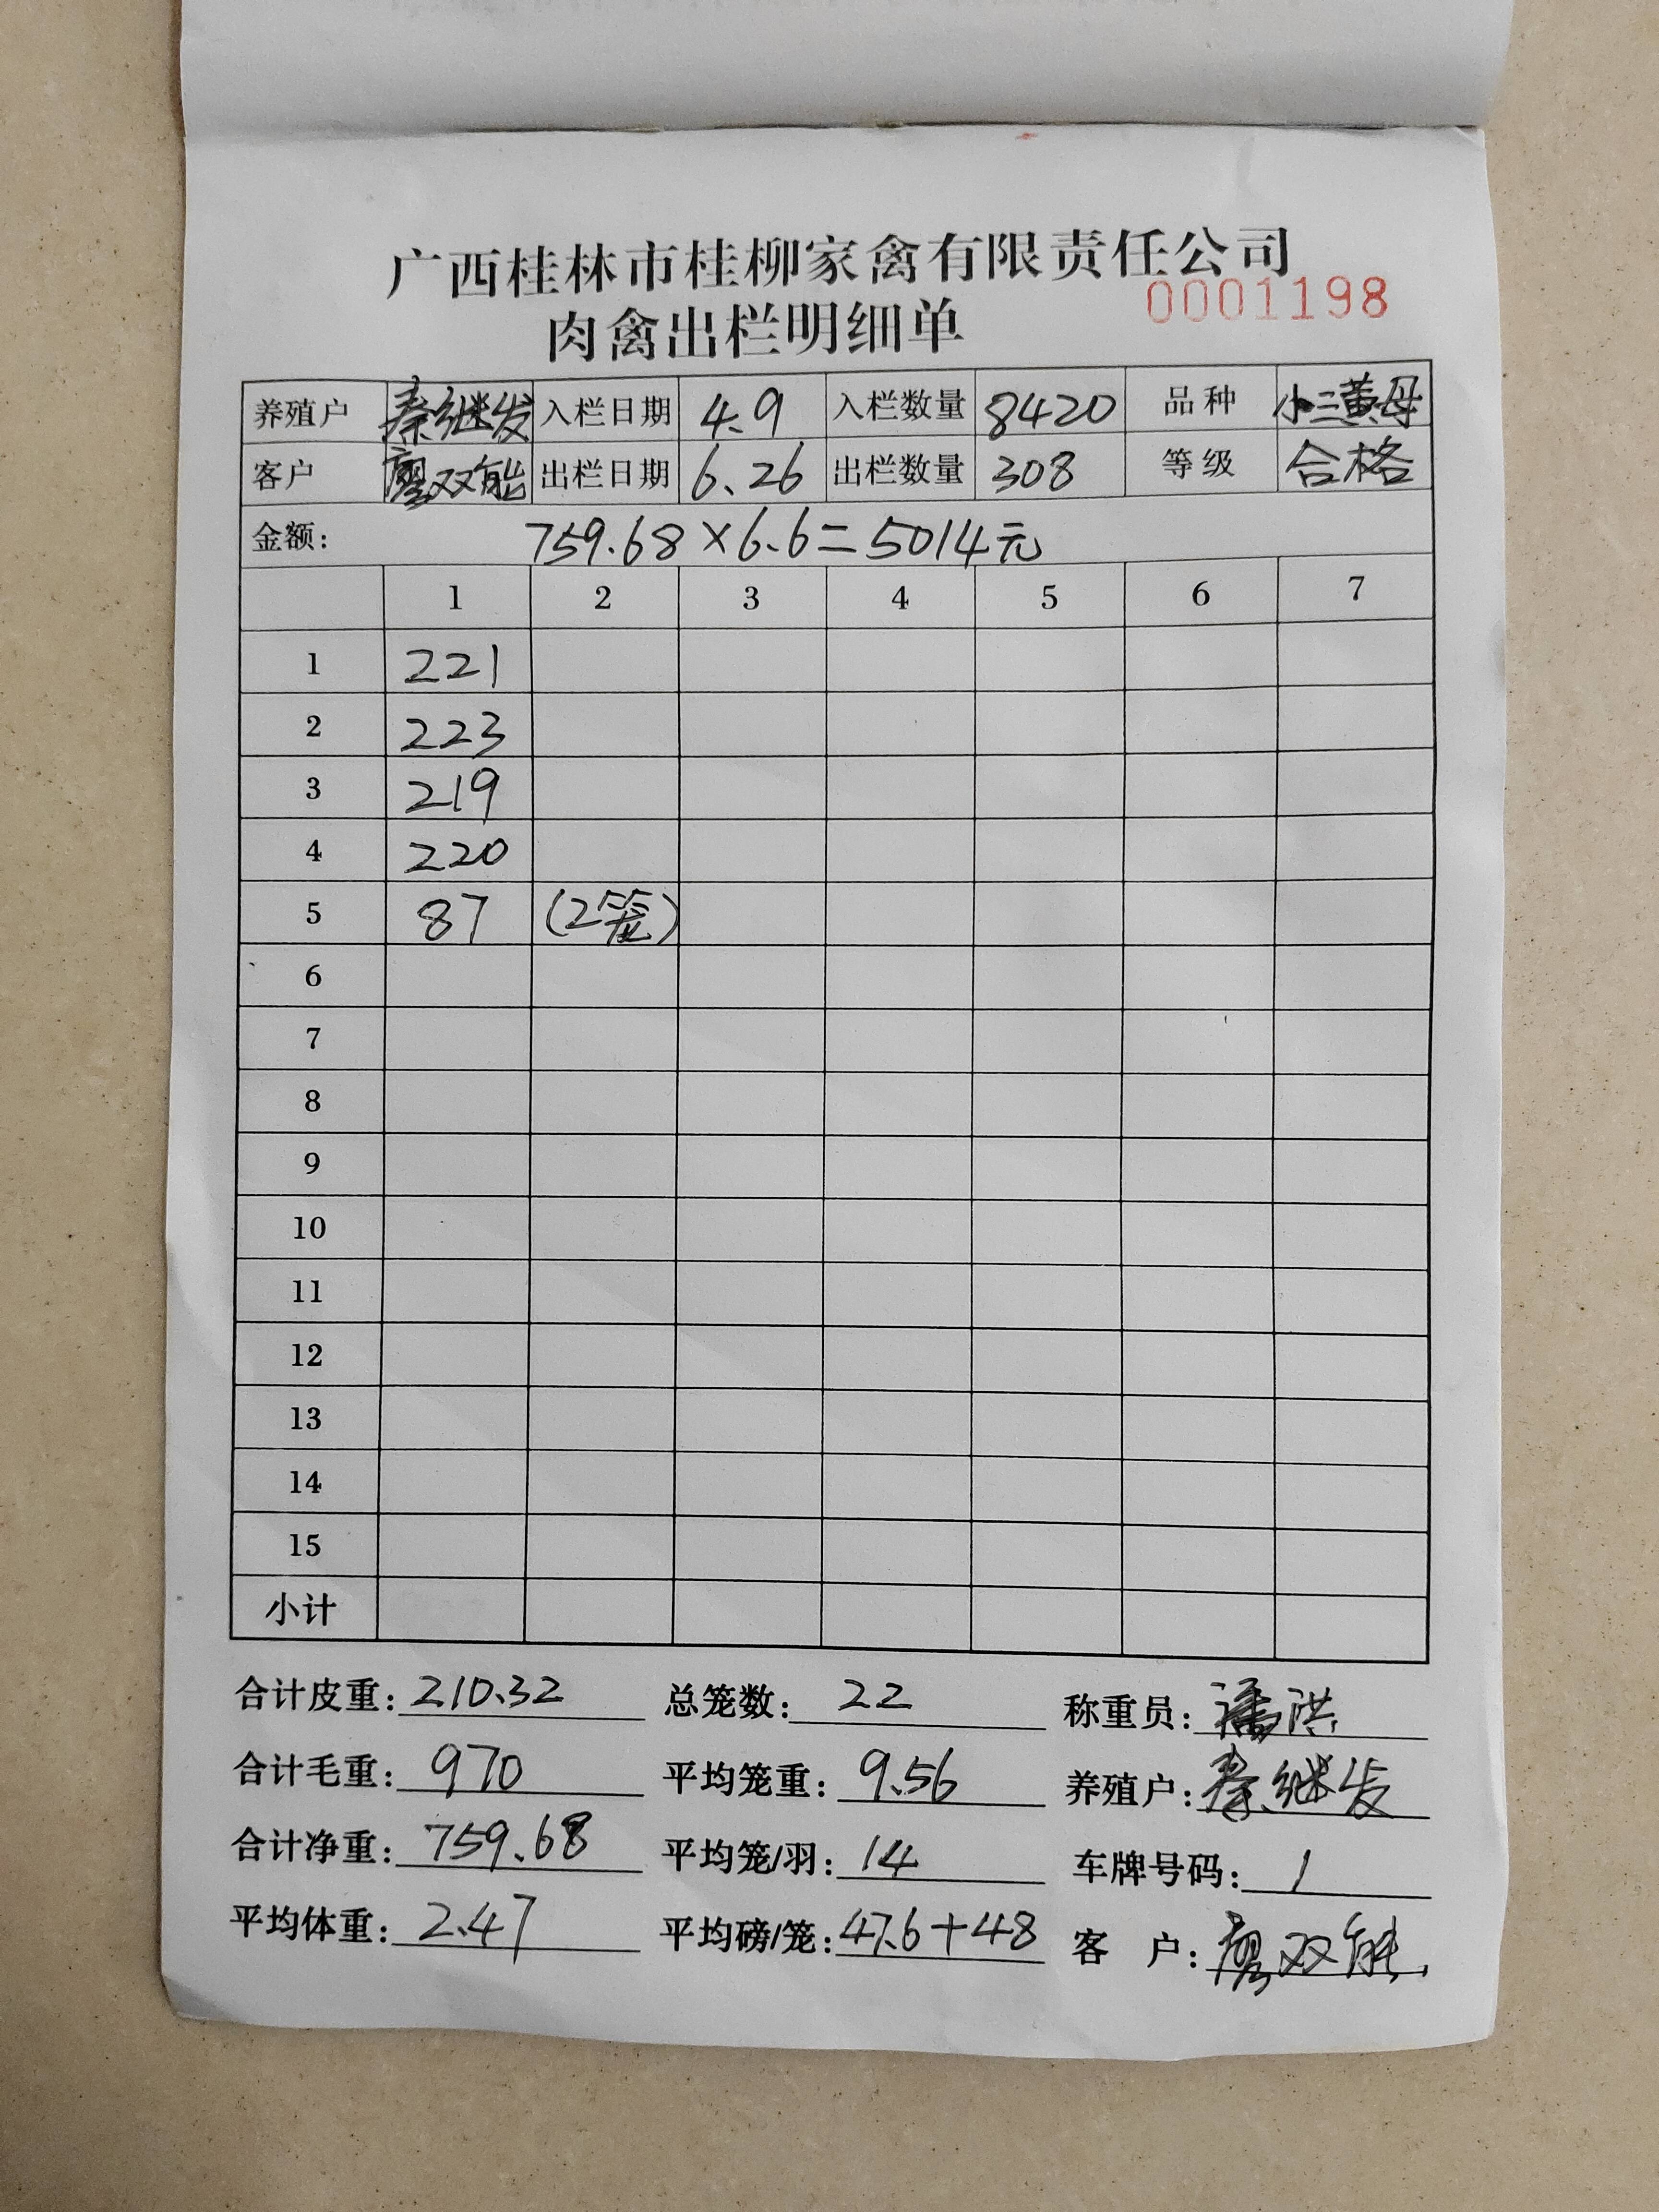 广西桂林市桂柳家禽有限责任公司
0001198
肉禽出栏明细单
养殖户 秦继发 入栏日期 4.9 入栏数量 8420 品种 小三黄母
客户 廖双能 出栏日期 6.26 出栏数量 308 等级 合格
金额: 759.68×6.6=5014元
1 2 3 4 5 6 7
1 221
2 223
3 219
4 220
5 87 (2笼)
6
7
8
9
10
11
12
13
14
15
小计
合计皮重: 210.32 总笼数: 22 称重员: 潘洪
合计毛重: 970 平均笼重: 9.56 养殖户: 秦继发
合计净重: 759.68 平均笼/羽: 14 车牌号码: 1
平均体重: 2.47 平均磅/笼: 47.6+48 客户: 廖双能